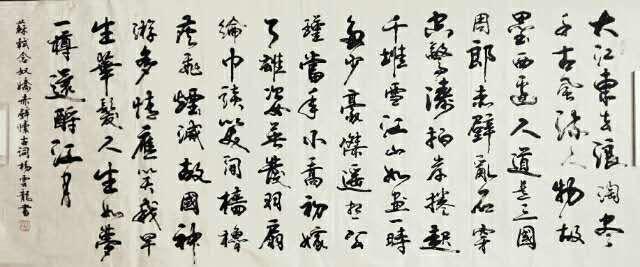 大江東去浪淘尽
千古風流人物故
壘西邊人道是三國
周郎赤壁亂石穿
空驚濤拍岸捲起
千堆雪江山如画一時
多少豪傑遙想公
瑾當年小喬初嫁
了雄姿英發羽扇
綸巾談笑間檣櫓
灰飛煙滅故國神
游多情應笑我早
生華髮人生如夢
一樽還酹江月
蘇軾念奴嬌赤壁懷古詞楊雲龍書